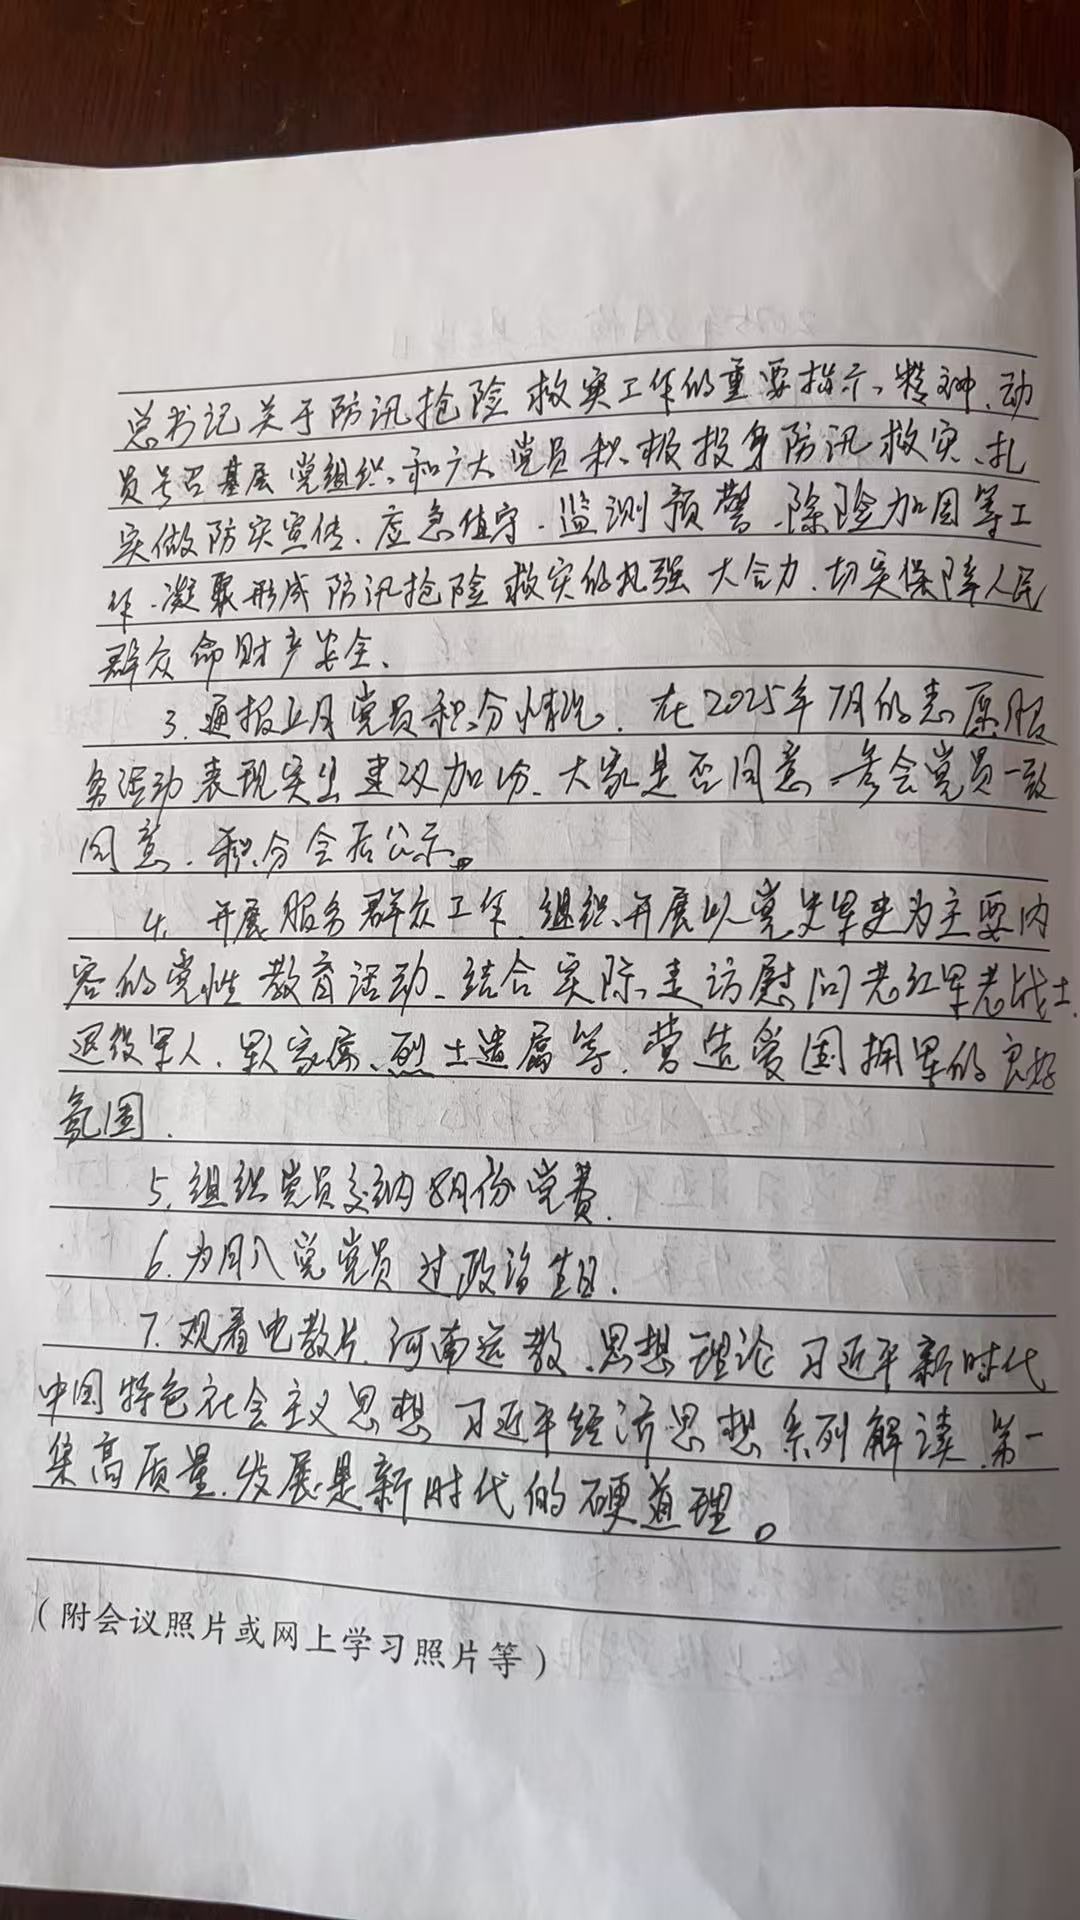 总书记关于防汛抢险救灾工作的重要指示、精神、动
员号召基层党组织、和广大党员积极投身防汛救灾、扎
实做防灾宣传、应急值守、监测预警、除险加固等工
作、凝聚形成防汛抢险救灾的扎强大合力、切实保障人民
群众命财产安全、
3、通报上月党员积分情况、在2025年7月的志愿服
务活动表现突出建议加分、大家是否同意、参会党员一致
同意、积分会后公示。
4、开展服务群众工作、组织、开展以党史军史为主要内
容的党性教育活动、结合实际、走访慰问老红军老战士、
退役军人、军人家属、烈士遗属等、营造爱国拥军的良好
氛围、
5、组织党员交纳8月份党费、
6、为月入党党员过政治生日、
7、观看电教片、河南远教、思想理论 习近平新时代
中国特色社会主义思想 习近平经济思想系列解读、第一
集高质量、发展是新时代的硬道理。
（附会议照片或网上学习照片等）